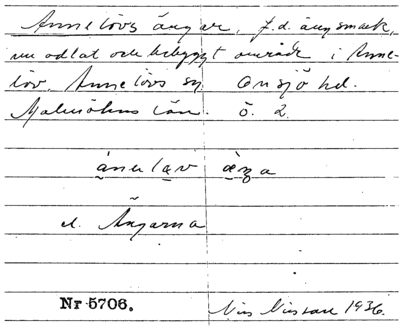 Annelövs ängar, f.d. ängsmark,
nu odlat och bebyggt område i Anne-
löv, Annelövs sn Onsjö hd.
Malmöhus län. ö. 2.
ànelav æ̀ŋa
el. Ängarna
Nr 5706.
Nils Nilsson 1936.